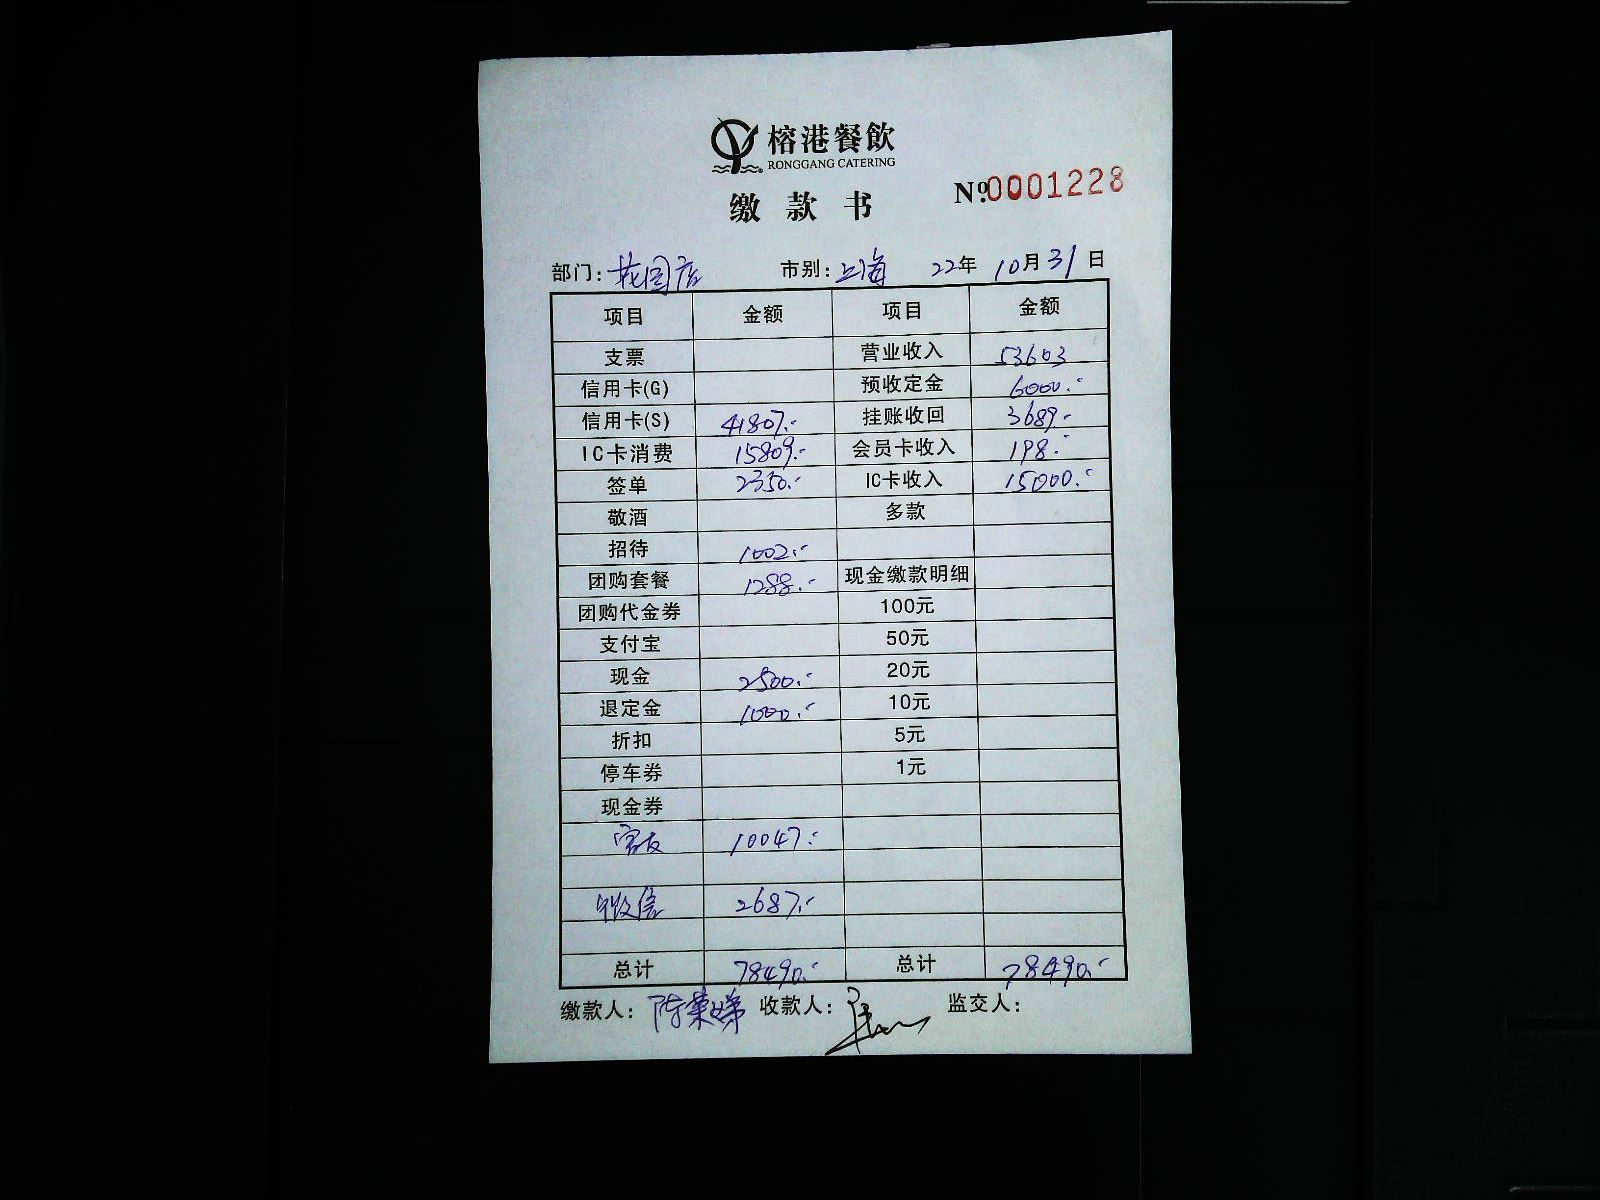 榕港餐飲
RONGGANG CATERING
缴款书
Nº:0001228
部门: 花园店 市别: 上海 22年 10月31日
项目 金额 项目 金额
支票 营业收入 53603
信用卡(G) 预收定金 6000.-
信用卡(S) 41807.- 挂账收回 3689.-
IC卡消费 15809.- 会员卡收入 198.-
签单 2350.- IC卡收入 15000.-
敬酒 多款
招待 1002.-
团购套餐 1288.- 现金缴款明细
团购代金券 100元
支付宝 50元
现金 2500.- 20元
退定金 1000.- 10元
折扣 5元
停车券 1元
现金券
10047.-
微信 2687.-
总计 78490.- 总计 78490.-
缴款人: 陈 收款人: 监交人: